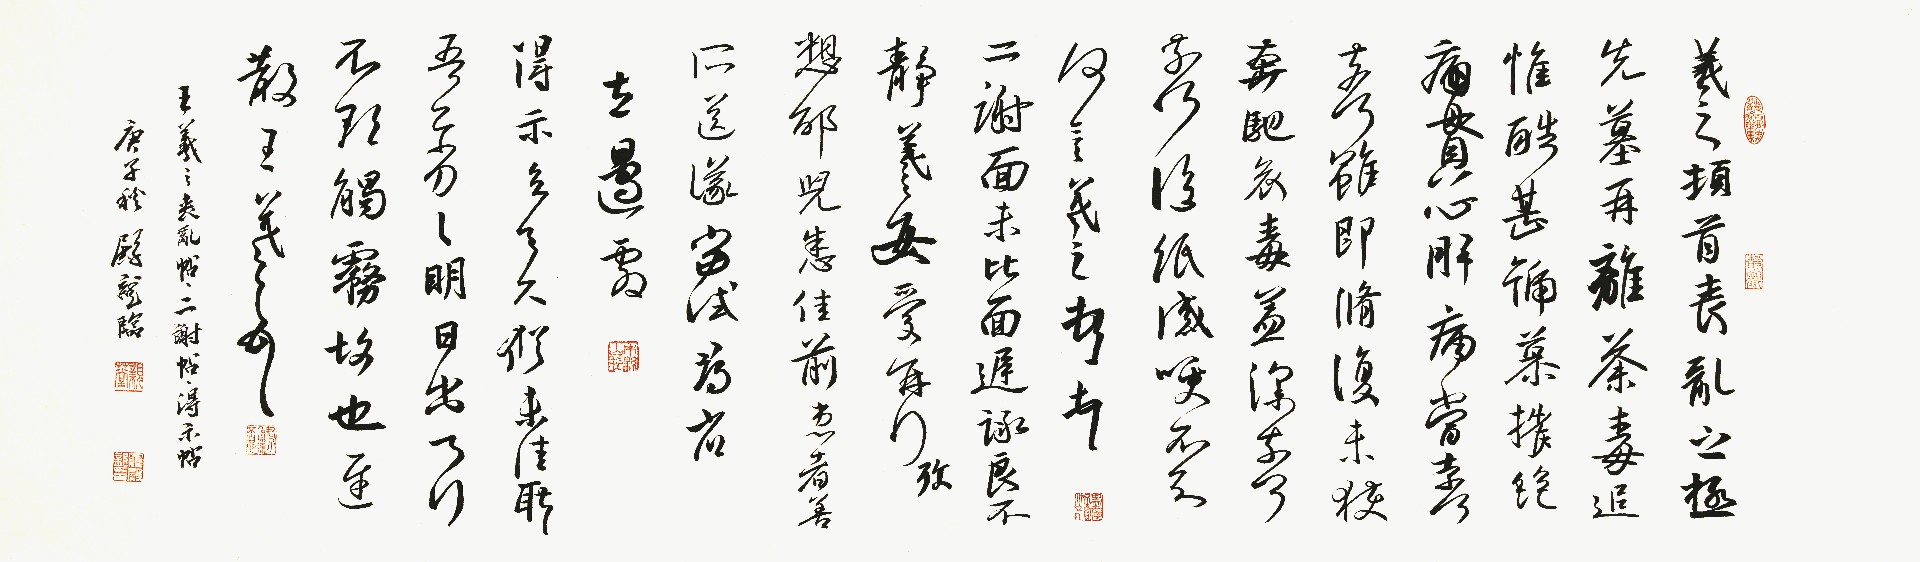 羲之頓首喪亂之極
先墓再離荼毒追
惟酷甚號慕摧絕
痛貫心肝痛當奈何
奈何雖即脩復未獲
奔馳哀毒益深奈何
奈何臨紙感哽不知
何言羲之頓首頓首
二謝面未比面遲詠良不
靜羲之女愛再拜
想邰兒悉佳前患者善
所送議當試尋省
左邊劇
得示知足下猶未佳耿
吾亦劣劣明日出乃行
不欲觸霧故也遲
散王羲之頓首
王羲之喪亂帖、二謝帖、得示帖
庚子秋 龍臨